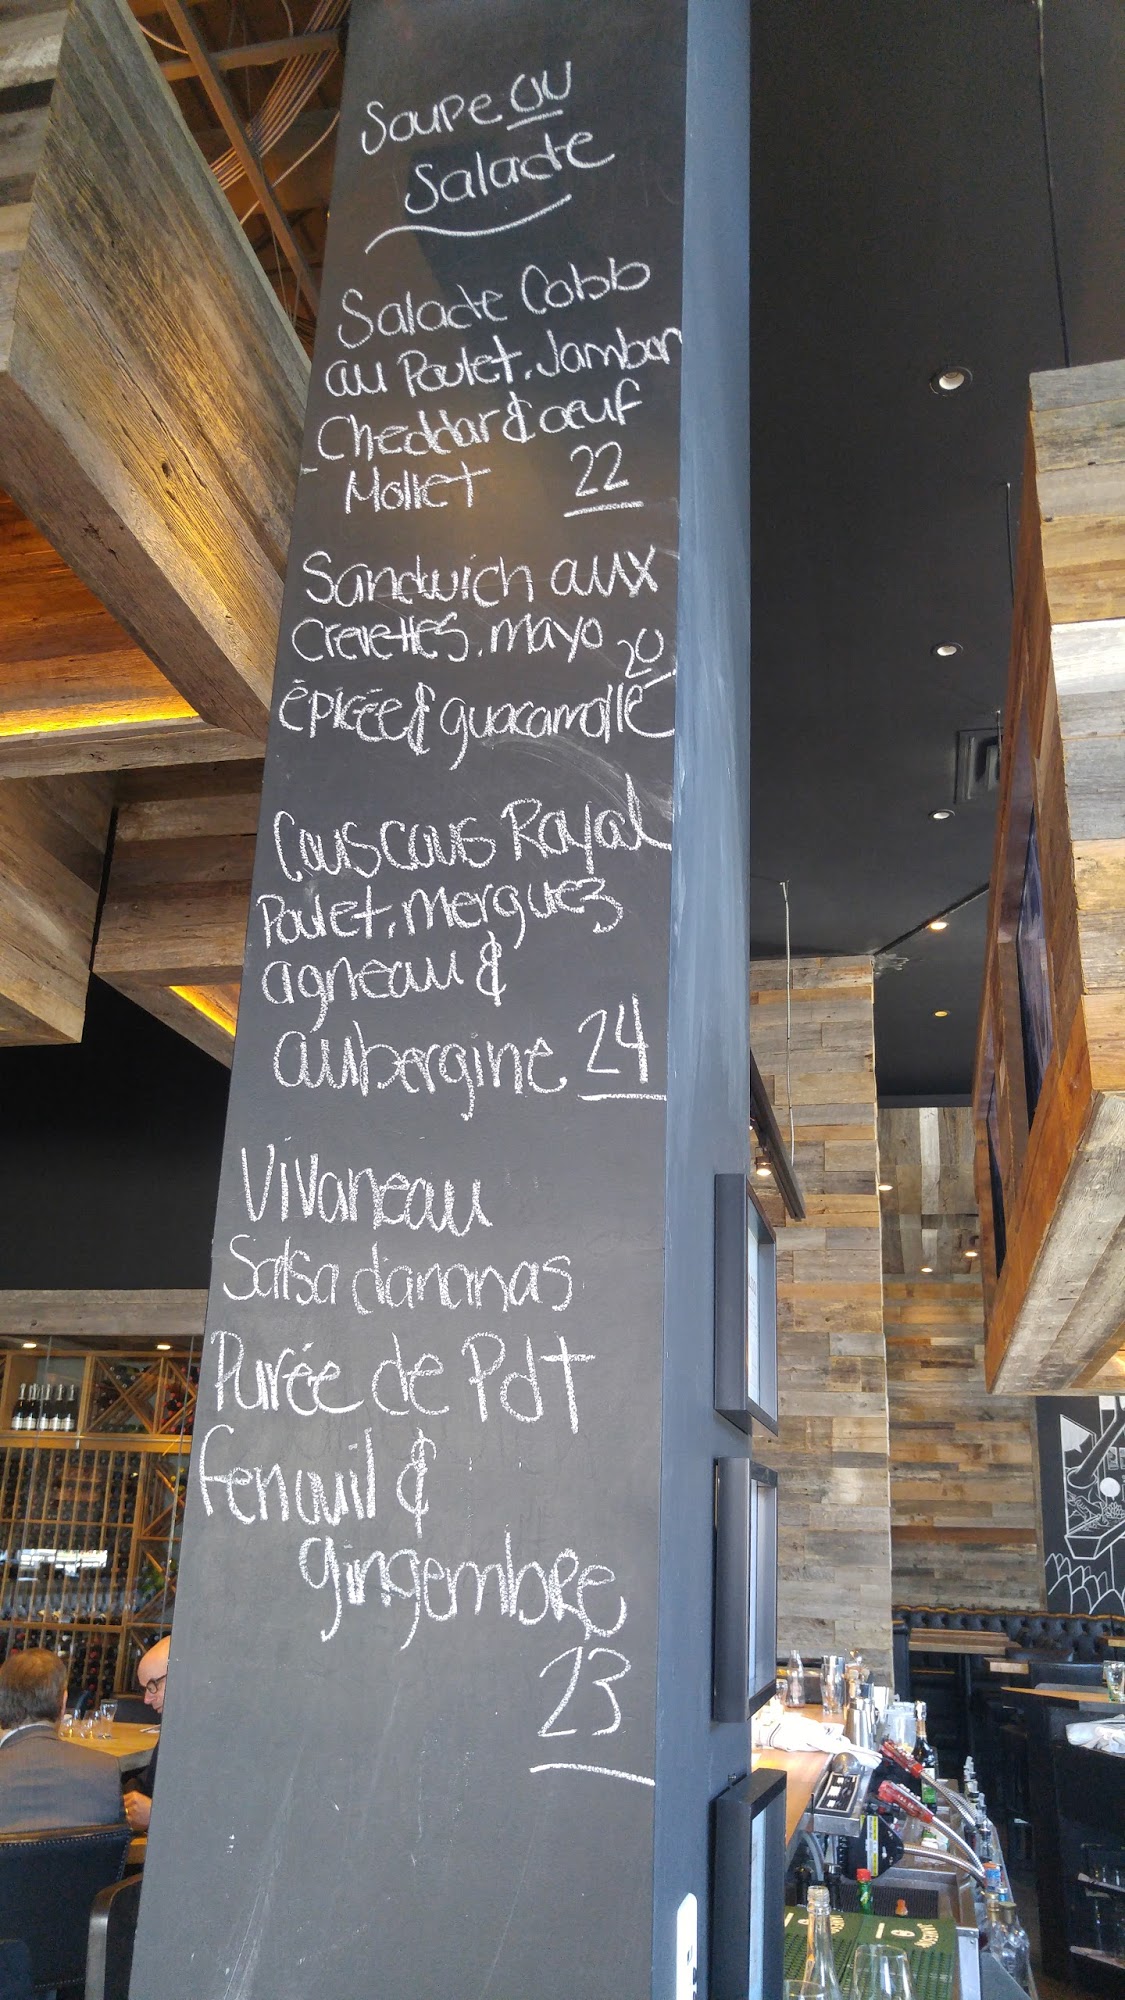 Soupe ou
Salade
Salade Cobb
au Poulet, Jambon
Cheddar & oeuf
Mollet 22
Sandwich aux
Crevettes, mayo 20
épicée & guacamolle
Couscous Royal
Poulet, merguez
agneau &
aubergine 24
Vivaneau
Salsa dananas
Purée de Pdt
fenouil &
gingembre
23